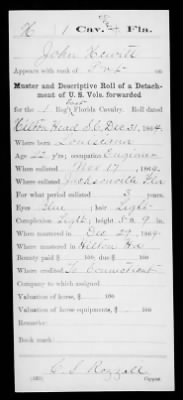 H | 1 | Cav. | Fla.
John Hewitt
Appears with rank of Pvt on
Muster and Descriptive Roll of a Detach-
ment of U. S. Vols. forwarded
for the 1 Reg't East Florida Cavalry. Roll dated
Hilton Head S.C. Dec 31, 1864.
Where born Louisiana
Age 22 y'rs; occupation Engineer
When enlisted Nov 17, 1864.
Where enlisted Jacksonville Fla
For what period enlisted 3 years.
Eyes Blue; hair Light
Complexion Light; height 5 ft. 9 in.
When mustered in Dec 29, 1864.
Where mustered in Hilton Hd
Bounty paid $ 100; due $ 100
Where credited To Connecticut
Company to which assigned
Valuation of horse, $ 100
Valuation of horse equipments, $ 100
Remarks:
Book mark:
Copyist.